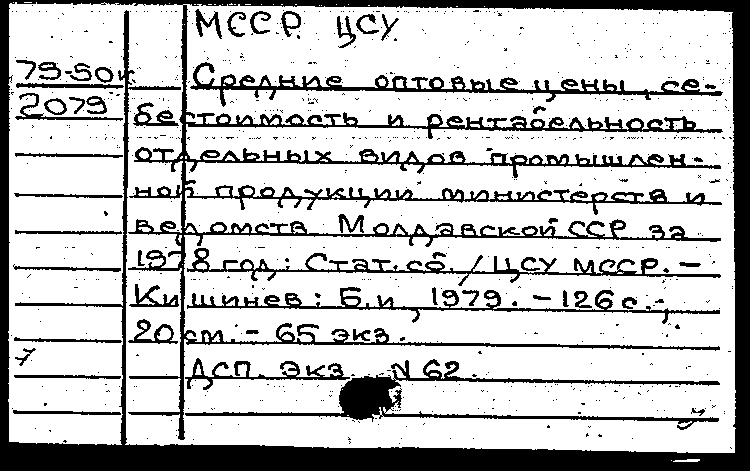 МССР. ЦСУ.
79-50к
2079
Средние оптовые цены, се-
бестоимость и рентабельность
отдельных видов промышлен-
ной продукции министерств и
ведомств Молдавской ССР за
1978 год: Стат. сб. / ЦСУ МССР. -
Кишинев: Б.и, 1979. - 126 с.;
20 см. - 65 экз.
ДСП. Экз. N 62.